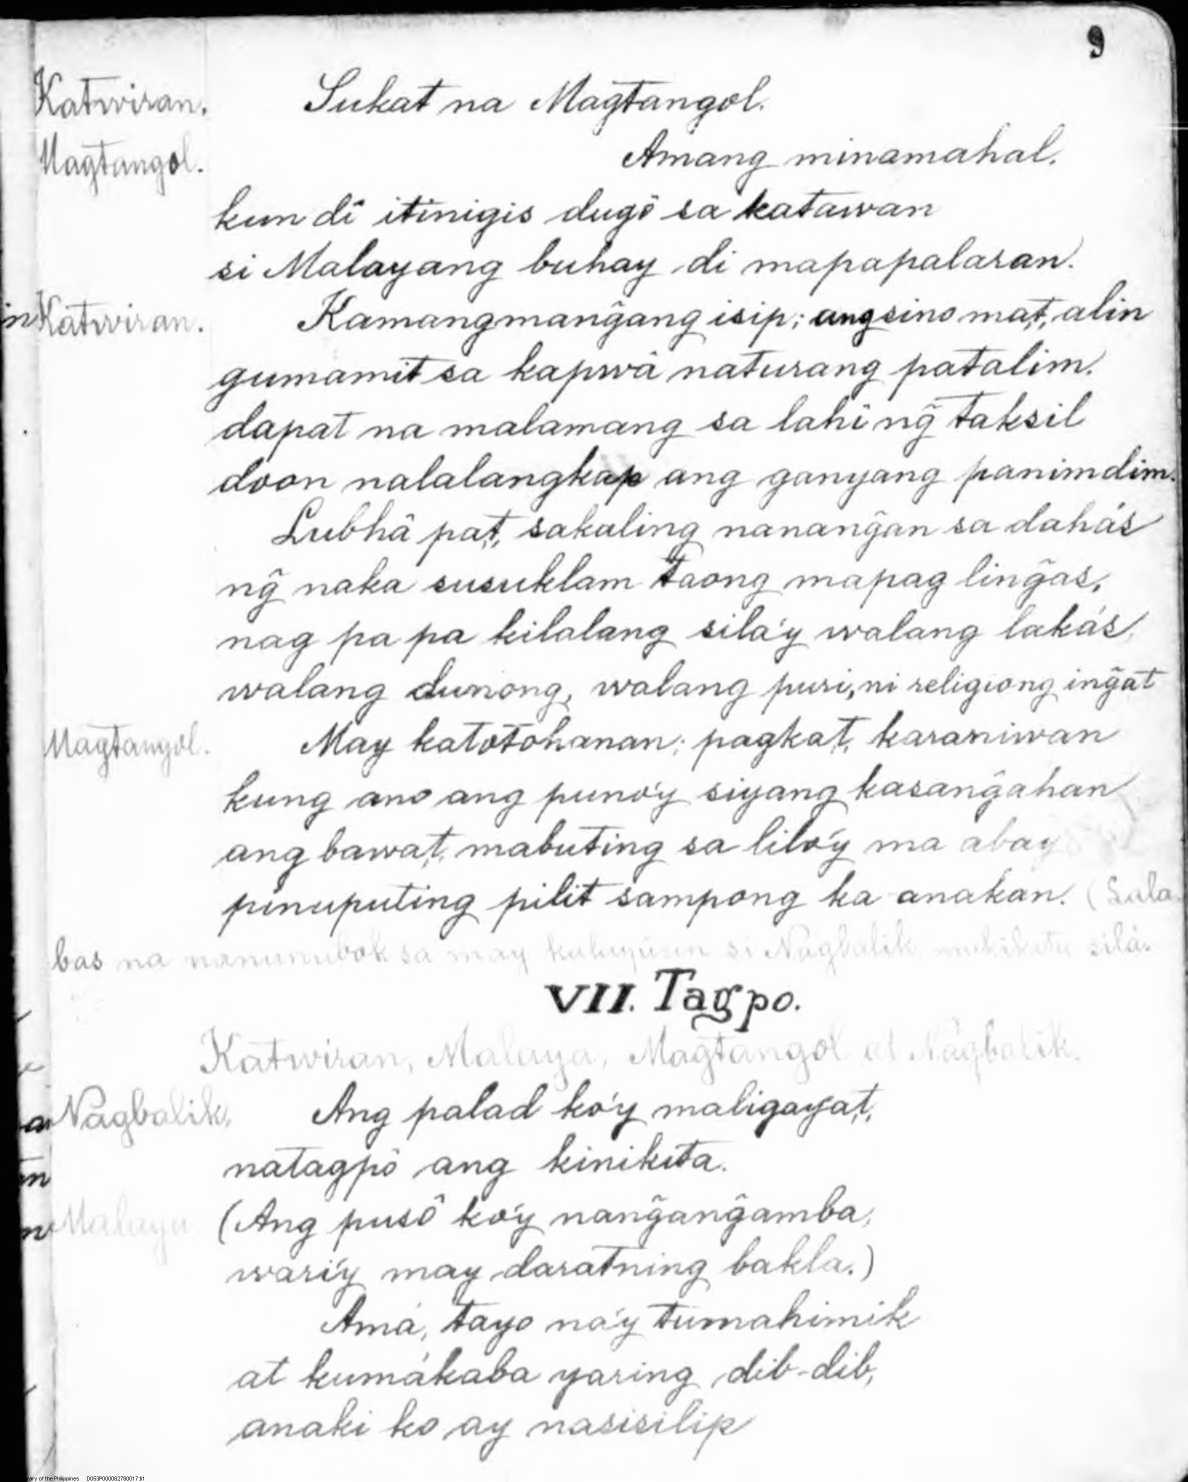 9
Katwiran. Sukat na Magtangol.
Magtangol. Amang minamahal.
kun dî itinigis dugô sa katawan
si Malayang buhay di mapapalaran.
Katwiran. Kamangmang̃ang isip; ang sino ma't, alin
gumamit sa kapwâ naturang patalim.
dapat na malamang sa lahî ng̃ taksil
doon nalalangkap ang ganyang panimdim.
Lubhâ pa't, sakaling nanang̃an sa dahás
ng̃ naka susuklam taong mapag ling̃as,
nag pa pa kilalang sila'y walang lakás,
walang dunong, walang puri, ni religiong ing̃at
Magtangol. May katotohanan; pagka't, karaniwan
kung ano ang puno'y siyang kasang̃ahan
ang bawa't, mabuting sa lilo'y ma abay
pinuputing pilit sampong ka-anakan. (Lala-
bas na nanunubok sa may si Nagbalik silá.
VII. Tagpo.
Katwiran, Malaya, Magtangol at Nagbalik.
Nagbalik. Ang palad ko'y maligaya't,
natagpô ang kinikita.
Malaya (Ang pusô ko'y nang̃ang̃amba,
wari'y may daratning bakla.)
Amá, tayo na'y tumahimik
at kumákaba yaring dib-dib,
anaki ko ay nasisilip